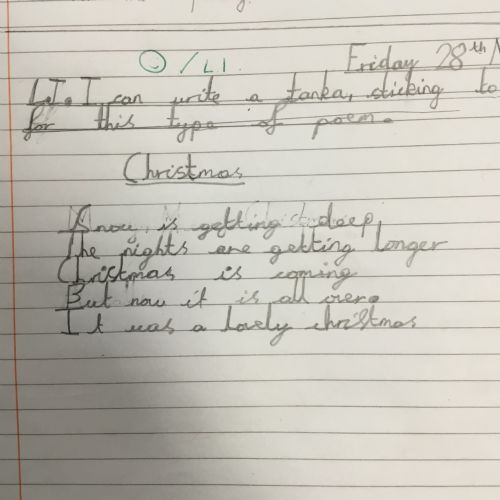 / L1.
Friday 28th N
L.I. I can write a tanka, sticking to
for this type of poem.
Christmas
Snow is getting deep,
The nights are getting longer
Christmas is coming
But now it is all over.
It was a lovely christmas